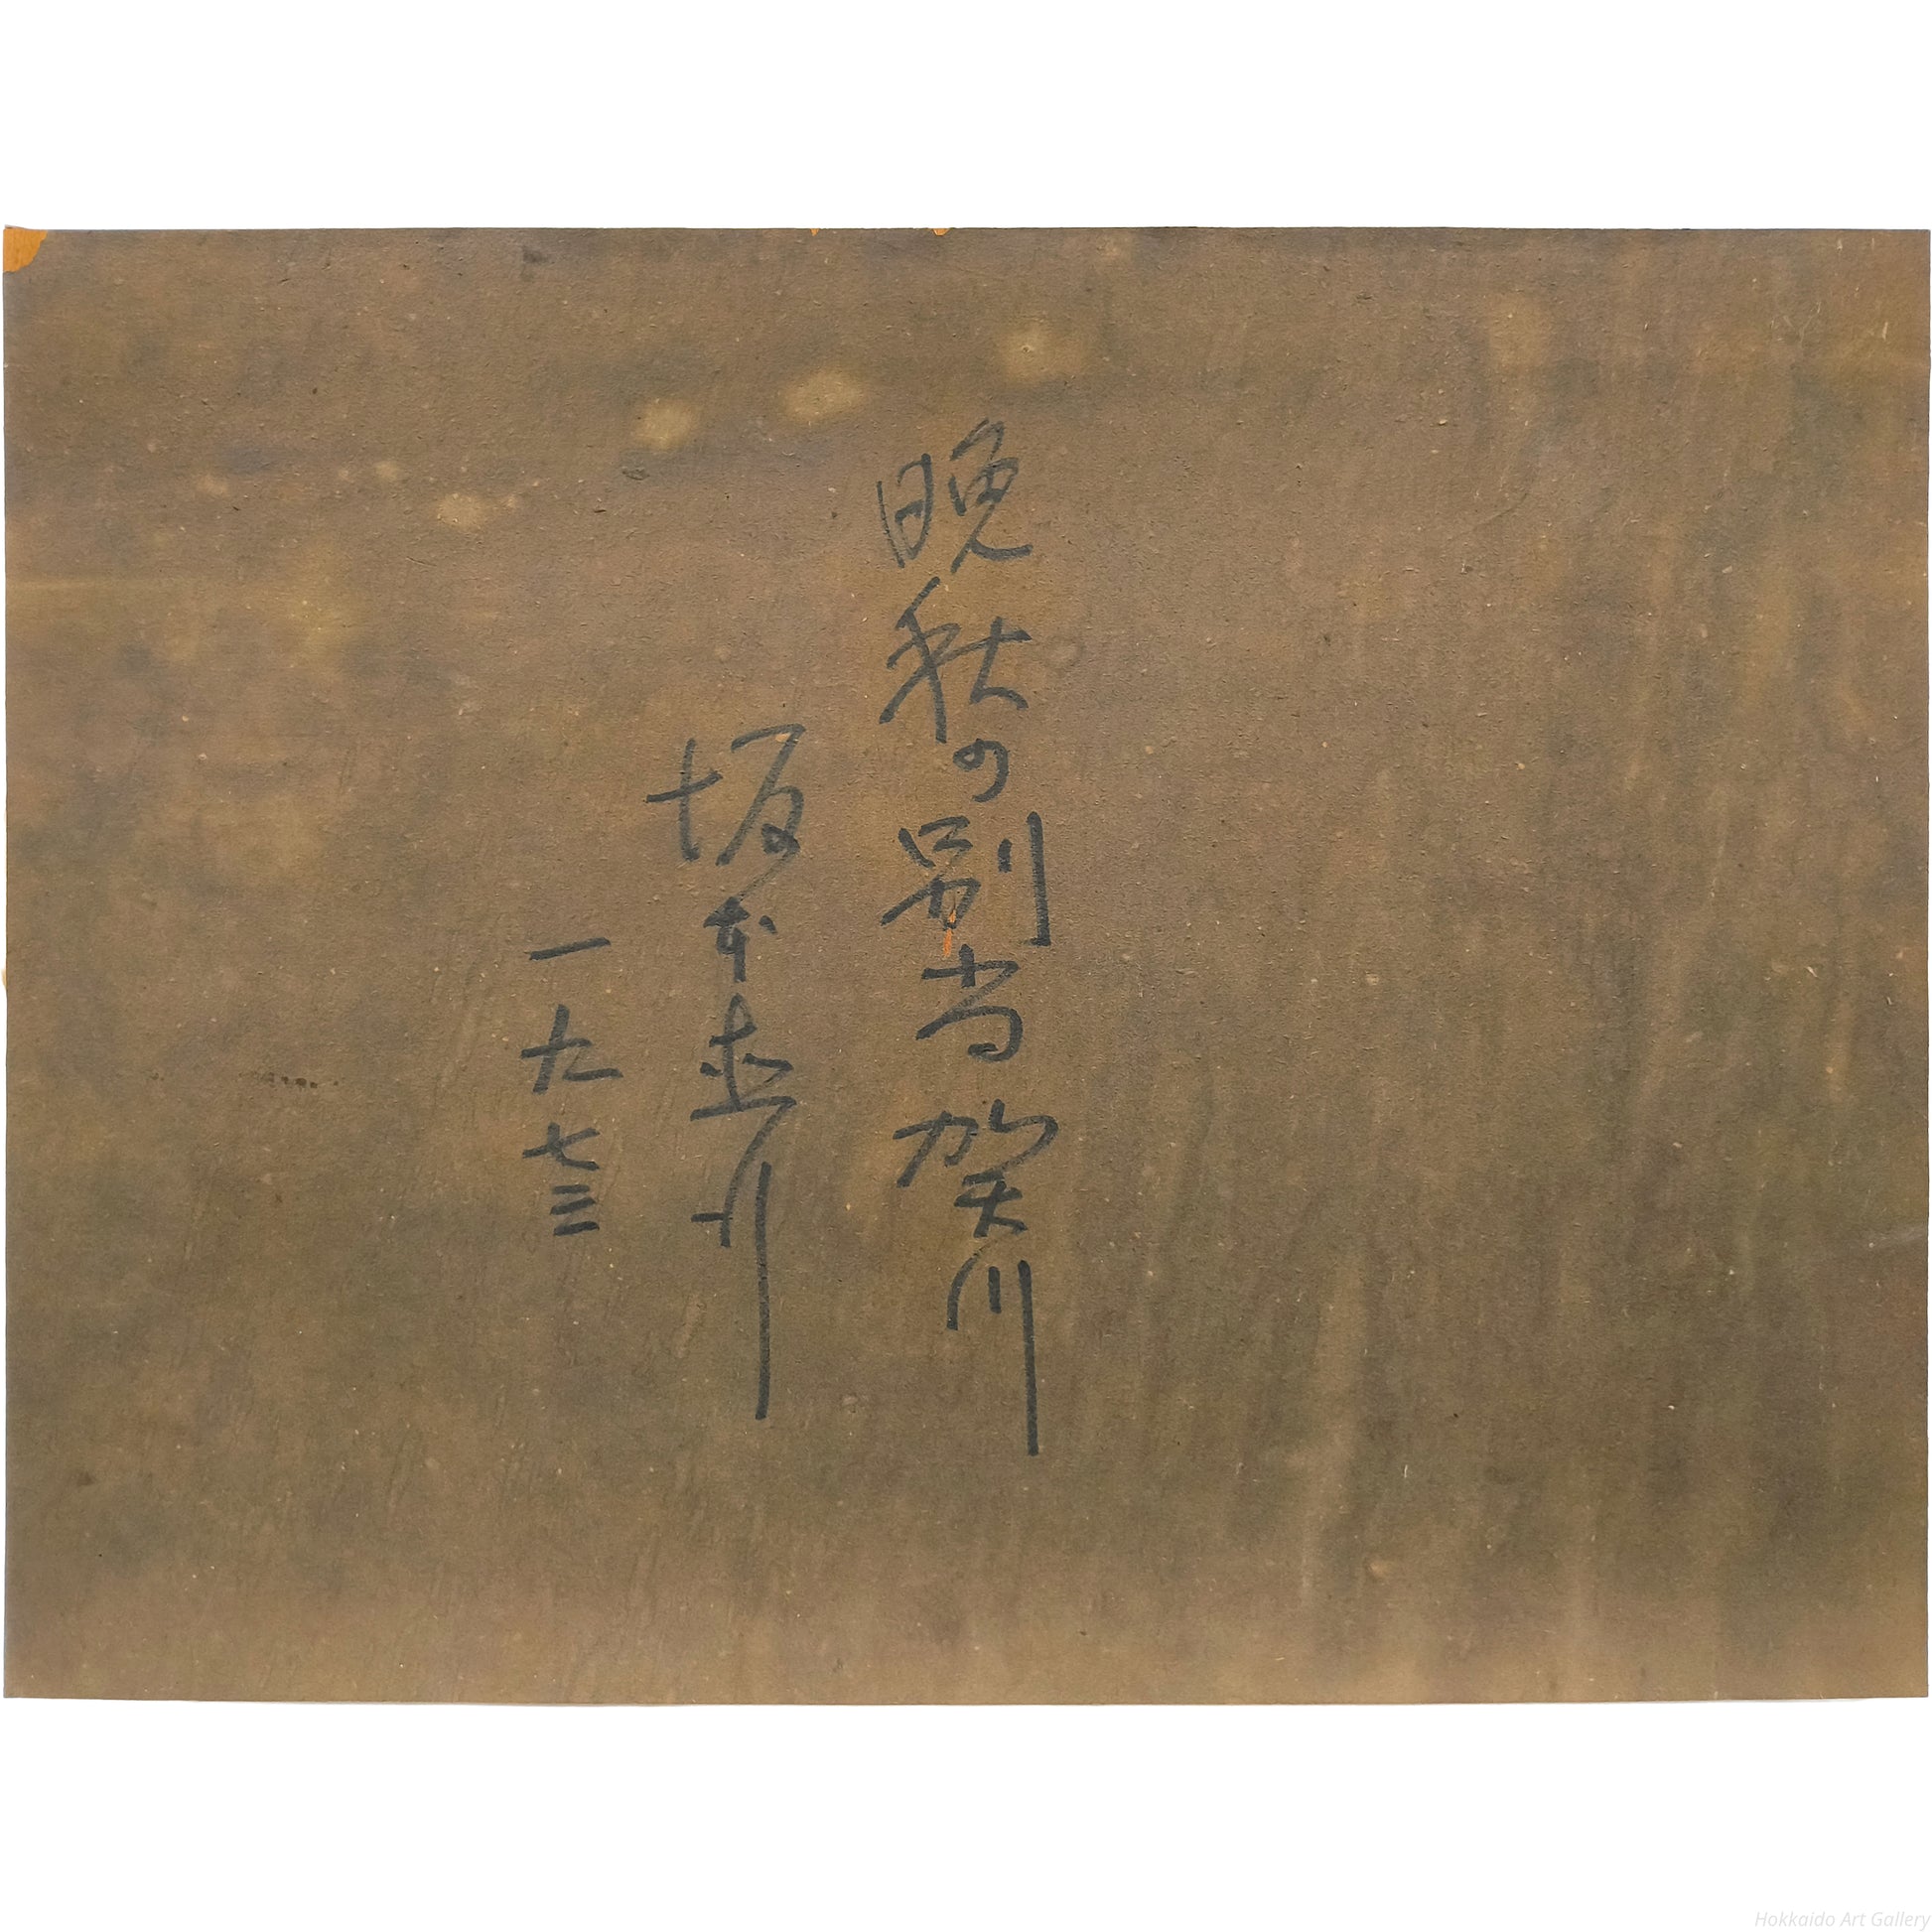 晩秋の別当賀川
坂本直行
一九七三
Hokkaido Art Gallery